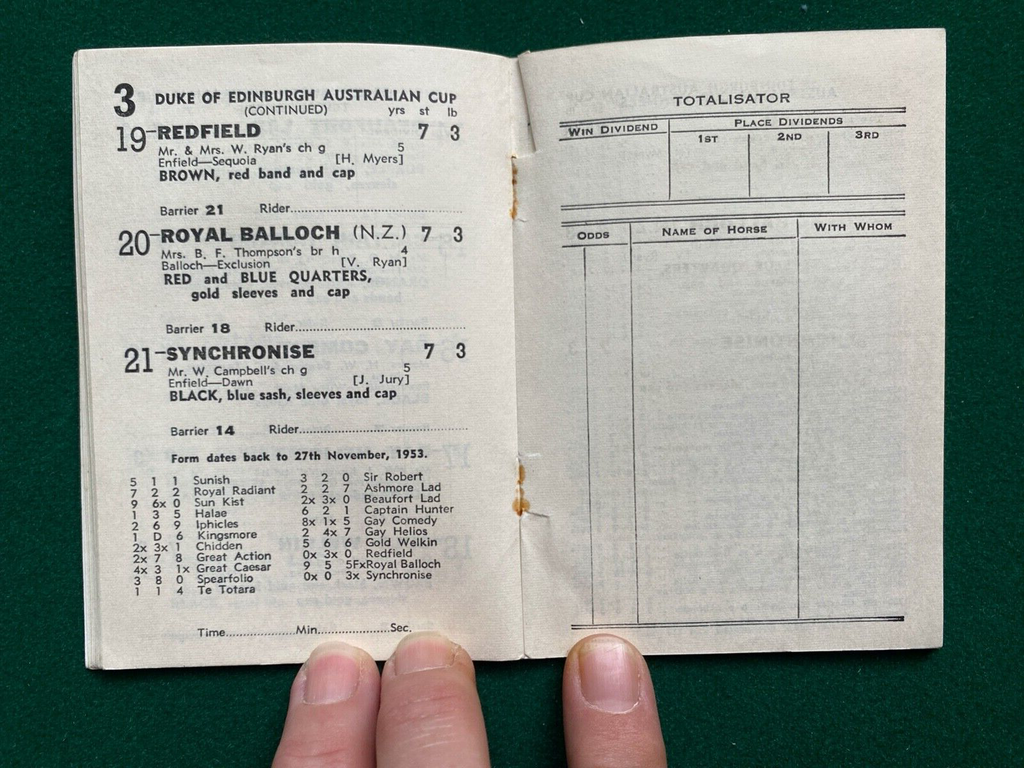 3 DUKE OF EDINBURGH AUSTRALIAN CUP
(CONTINUED) yrs st lb
19-REDFIELD 7 3
Mr. & Mrs. W. Ryan's ch g 5
Enfield—Sequoia [H. Myers]
BROWN, red band and cap
Barrier 21 Rider
20-ROYAL BALLOCH (N.Z.) 7 3
Mrs. B. F. Thompson's br h 4
Balloch—Exclusion [V. Ryan]
RED and BLUE QUARTERS,
gold sleeves and cap
Barrier 18 Rider
21-SYNCHRONISE 7 3
Mr. W. Campbell's ch g 5
Enfield—Dawn [J. Jury]
BLACK, blue sash, sleeves and cap
Barrier 14 Rider
Form dates back to 27th November, 1953.
5 1 1 Sunish
7 2 2 Royal Radiant
9 6x 0 Sun Kist
1 3 5 Halae
2 6 9 Iphicles
1 D 6 Kingsmore
2x 3x 1 Chidden
2x 7 8 Great Action
4x 3 1x Great Caesar
3 8 0 Spearfolio
1 1 4 Te Totara
3 2 0 Sir Robert
2 2 7 Ashmore Lad
2x 3x 0 Beaufort Lad
6 2 1 Captain Hunter
8x 1x 5 Gay Comedy
2 4x 7 Gay Helios
5 6 6 Gold Welkin
0x 3x 0 Redfield
9 5 5FxRoyal Balloch
0x 0 3x Synchronise
Time Min. Sec.
TOTALISATOR
WIN DIVIDEND PLACE DIVIDENDS
1ST 2ND 3RD
ODDS NAME OF HORSE WITH WHOM